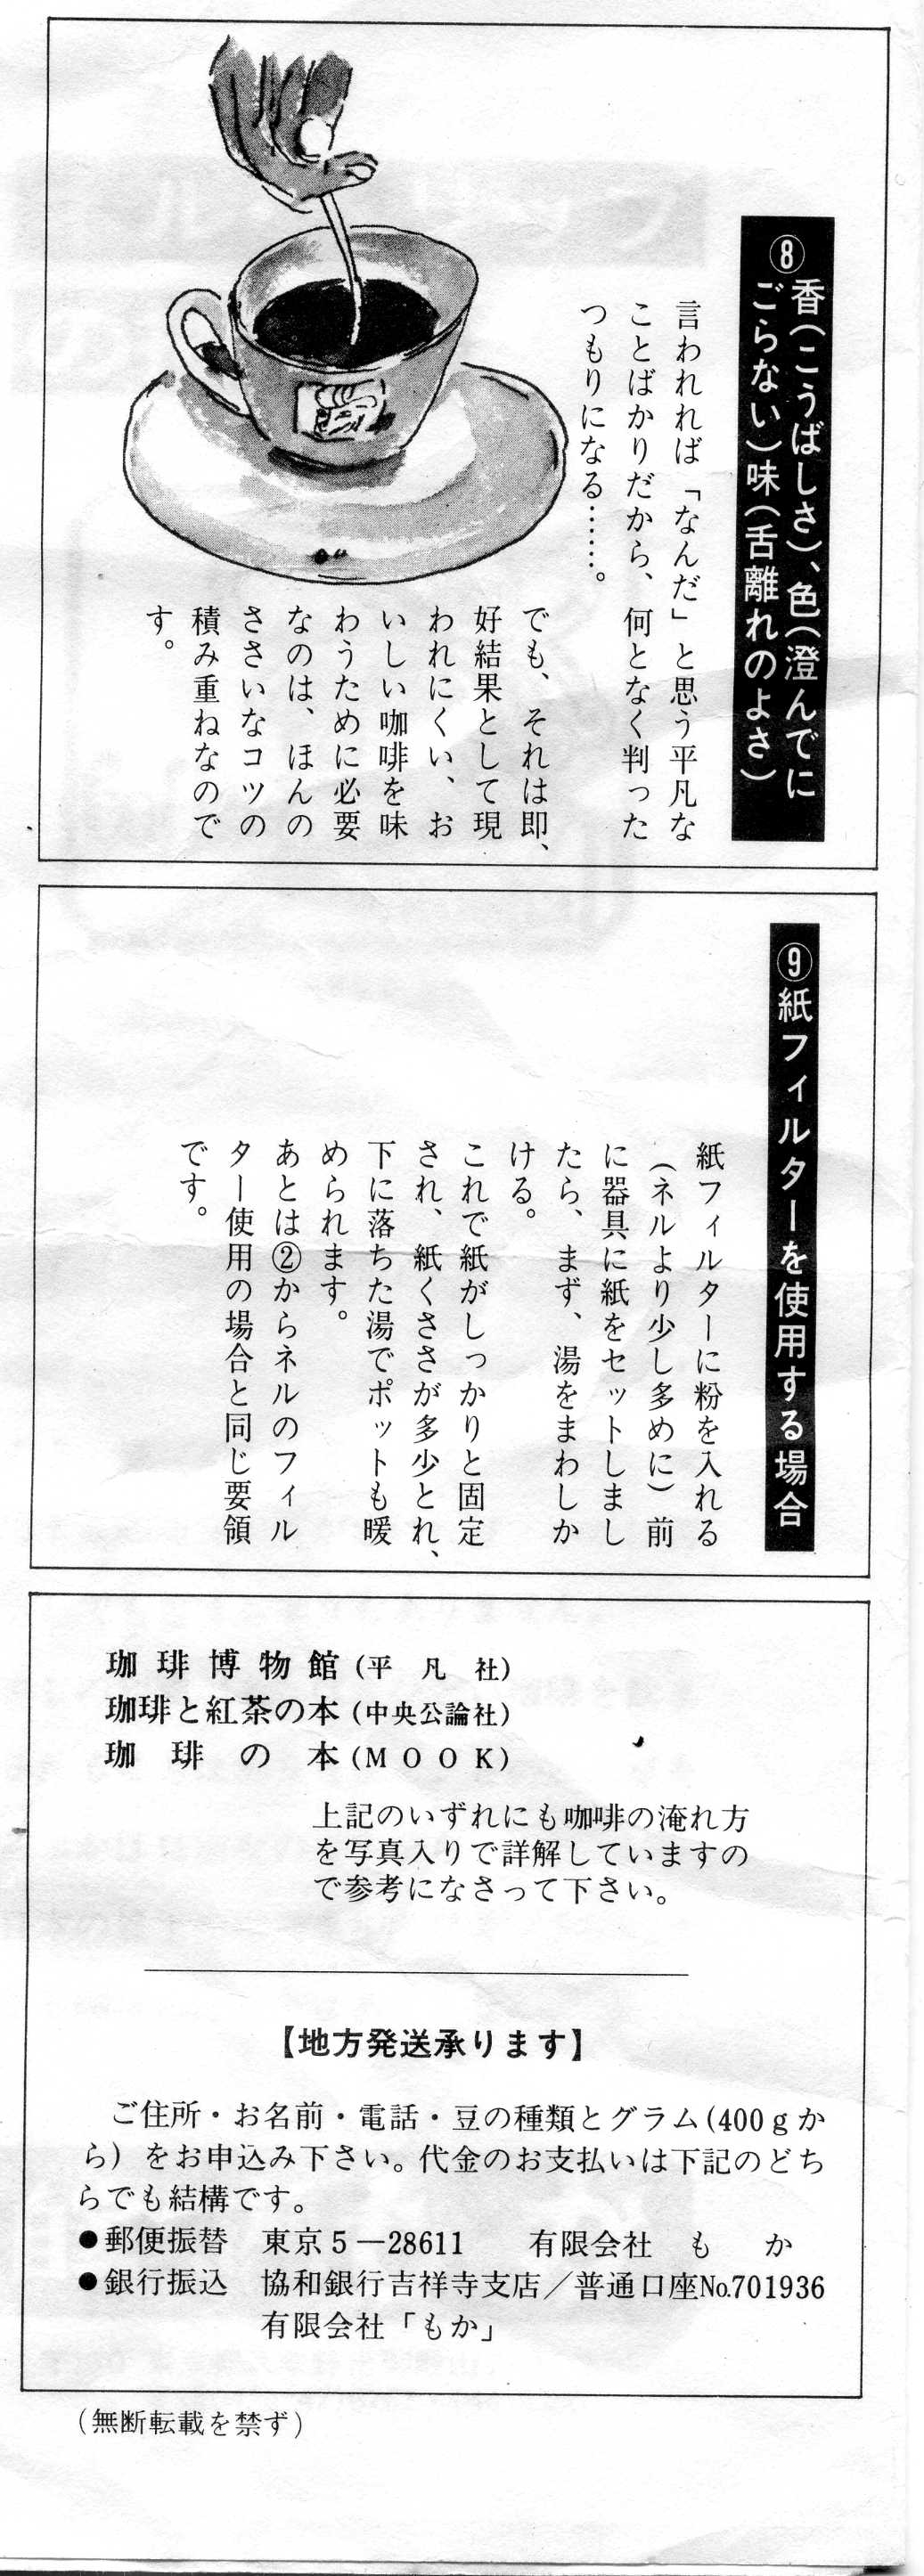 ⑧香(こうばしさ)、色(澄んでに
ごらない)味(舌離れのよさ)
言われれば「なんだ」と思う平凡な
ことばかりだから、何となく判った
つもりになる……。
でも、それは即、
好結果として現
われにくい、お
いしい咖啡を味
わうために必要
なのは、ほんの
ささいなコツの
積み重ねなので
す。
⑨紙フィルターを使用する場合
紙フィルターに粉を入れる
(ネルより少し多めに)前
に器具に紙をセットしまし
たら、まず、湯をまわしか
ける。
これで紙がしっかりと固定
され、紙くささが多少とれ、
下に落ちた湯でポットも暖
められます。
あとは②からネルのフィル
ター使用の場合と同じ要領
です。
珈琲博物館(平凡社)
珈琲と紅茶の本(中央公論社)
珈琲の本(MOOK)
上記のいずれにも咖啡の淹れ方
を写真入りで詳解していますの
で参考になさって下さい。
【地方発送承ります】
ご住所・お名前・電話・豆の種類とグラム(400gか
ら)をお申込み下さい。代金のお支払いは下記のどち
らでも結構です。
●郵便振替 東京5―28611 有限会社 もか
●銀行振込 協和銀行吉祥寺支店/普通口座No.701936
有限会社「もか」
(無断転載を禁ず)